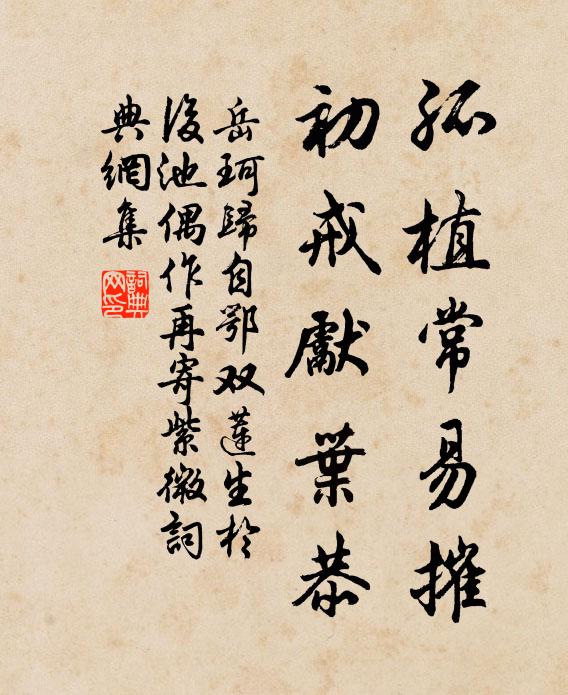 孤植常易摧
初戒獻葉恭
岳珂歸自鄂双蓮生於
後池偶作再寄紫微詞
典網集
詞典
网印